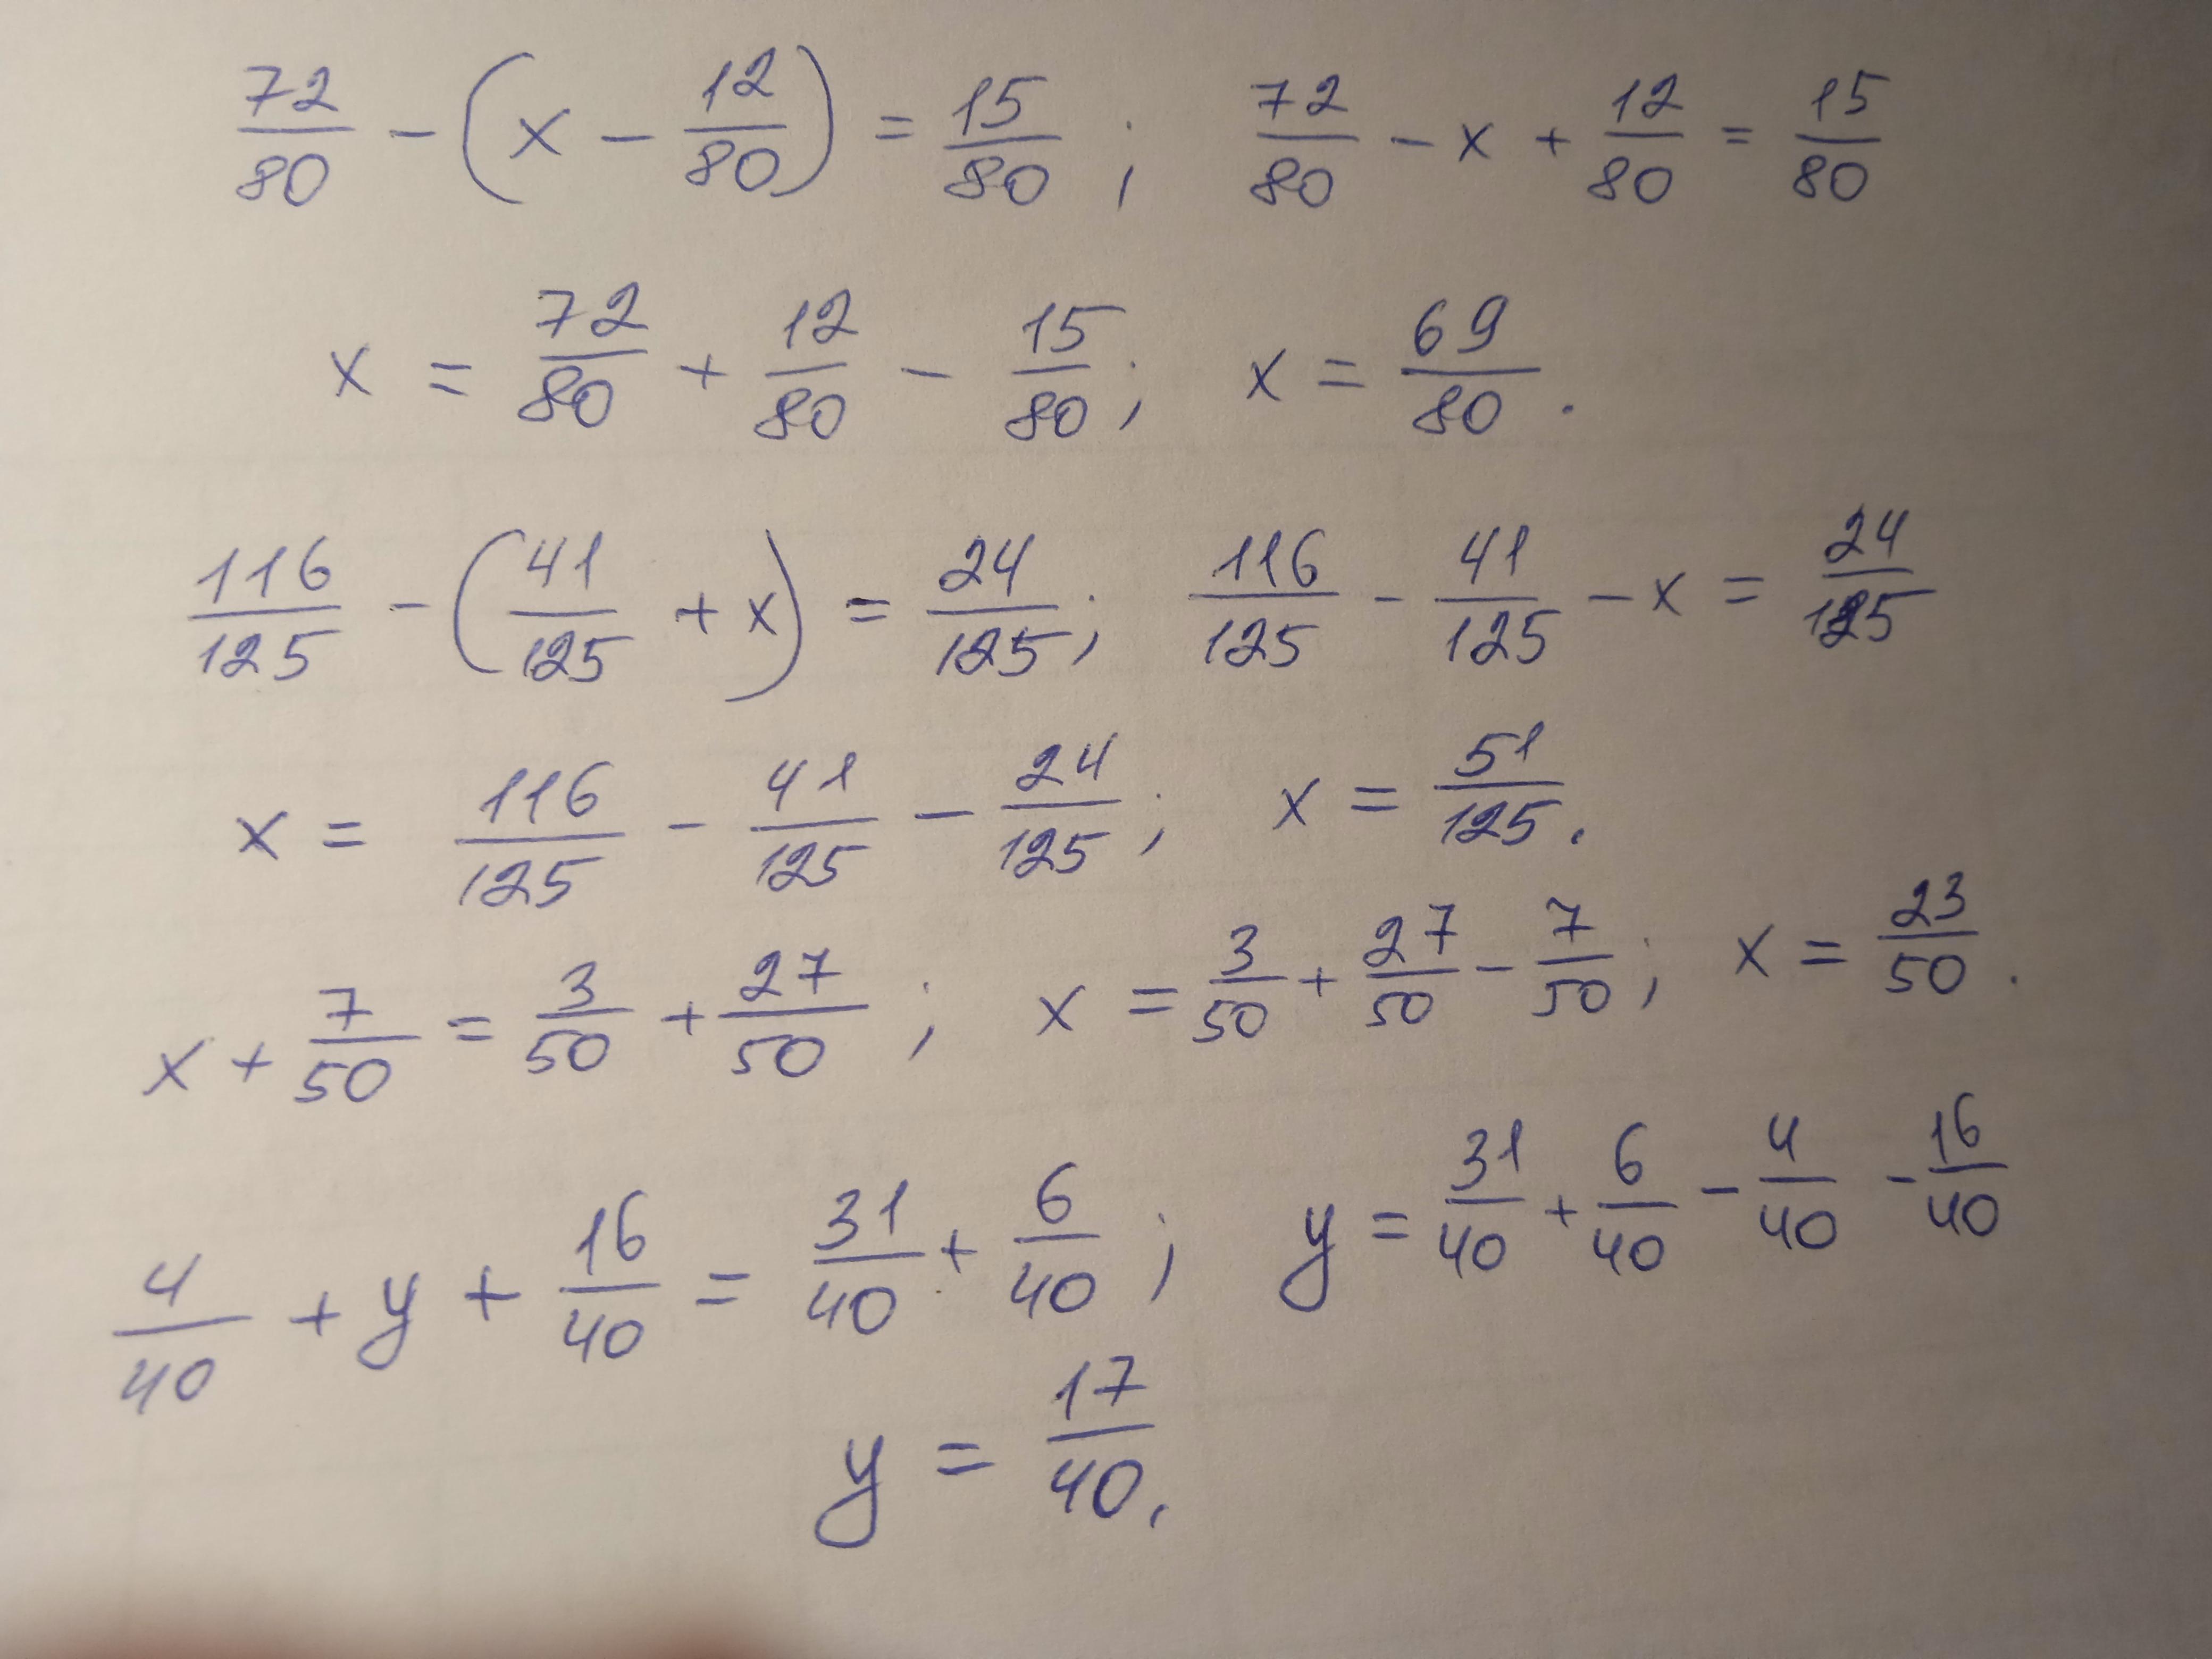 72/80 - (x - 12/80) = 15/80 ; 72/80 - x + 12/80 = 15/80
x = 72/80 + 12/80 - 15/80 ; x = 69/80 .
116/125 - (41/125 + x) = 24/125 ; 116/125 - 41/125 - x = 24/125
x = 116/125 - 41/125 - 24/125 ; x = 51/125 .
x + 7/50 = 3/50 + 27/50 ; x = 3/50 + 27/50 - 7/50 ; x = 23/50 .
4/40 + y + 16/40 = 31/40 + 6/40 ; y = 31/40 + 6/40 - 4/40 - 16/40
y = 17/40 .